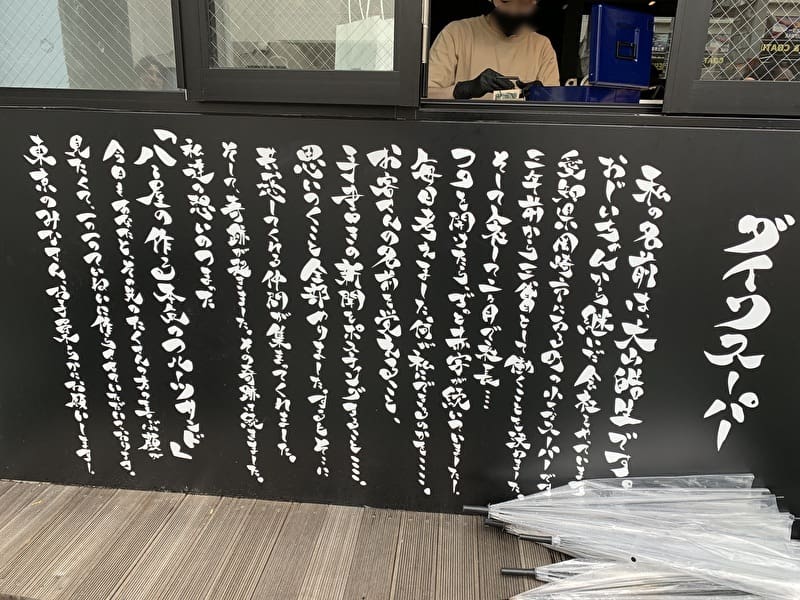 ダイワスーパー
私の名前は、大山皓生です。
おじいちゃんから継いだ会社をやっています
愛知県岡崎市にある町の小さなスーパーです
三年前から三代目として働くことを決めました。
そして入社して一ヶ月で社長…
フタを開けたら、ずっと赤字が続いていました!
毎日考えました。何が私にできるのかを……。
お客さんの名前を覚えること、
手書きの新聞をポスティングすること……。
思いつくこと全部やりました。するとそこに
共感してくれる仲間が集まってくれました。
そして、奇跡が起きました。その奇跡は続きました。
私達の想いのつまった
「八百屋の作る本気のフルーツサンド」
今日もあなたと、その先のたくさんの方の喜ぶ顔が
見たくて、一つ一つていねいに作らせていただいております。
東京のみなさん、お手柔らかにお願いします。